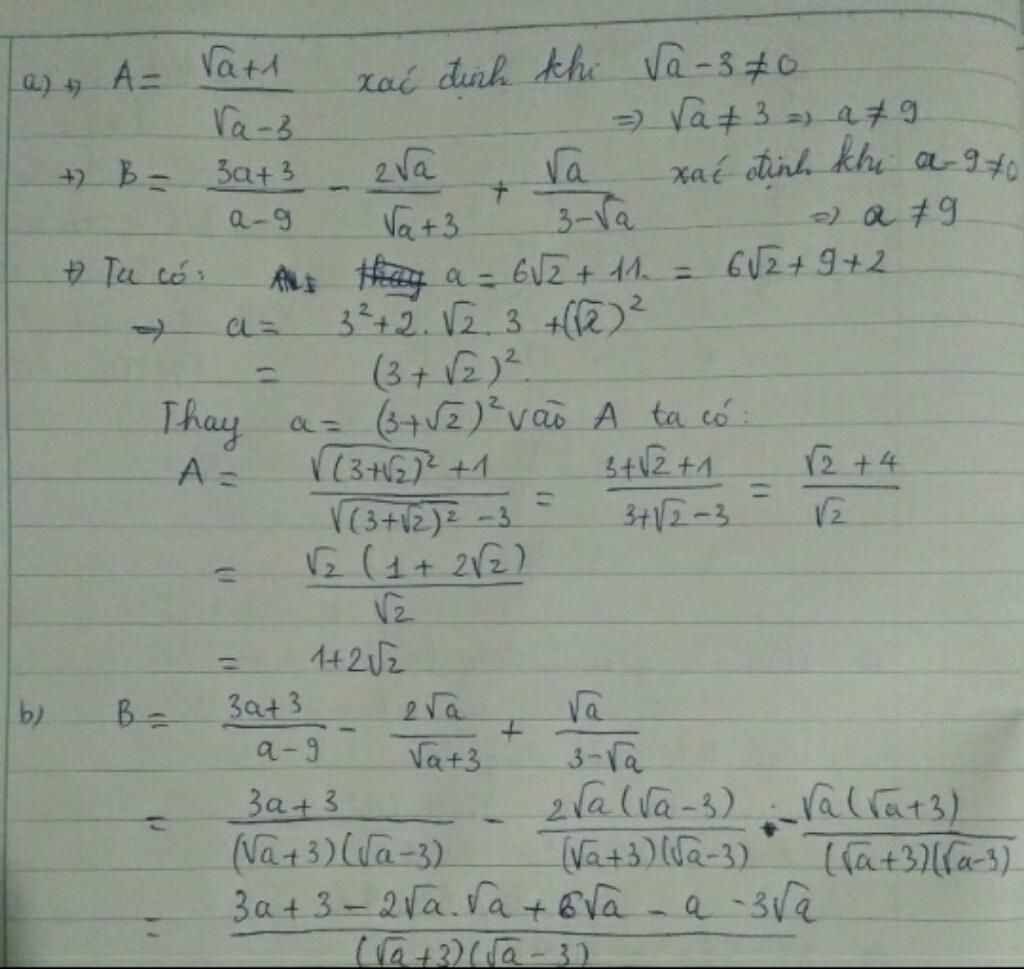 a) +) A = (√a+1)/(√a-3) xác định khi √a-3≠0
=> √a ≠ 3 => a ≠ 9
+) B = (3a+3)/(a-9) - (2√a)/(√a+3) + (√a)/(3-√a) xác định khi a-9≠0
=> a ≠ 9
+) Ta có: a = 6√2 + 11 = 6√2 + 9 + 2
=> a = 3² + 2.√2.3 + (√2)²
= (3 + √2)².
Thay a = (3+√2)² vào A ta có:
A = (√(3+√2)² + 1)/(√(3+√2)² - 3) = (3+√2+1)/(3+√2-3) = (√2 + 4)/(√2)
= (√2 (1 + 2√2))/(√2)
= 1+2√2
b) B = (3a+3)/(a-9) - (2√a)/(√a+3) + (√a)/(3-√a)
= (3a+3)/((√a+3)(√a-3)) - (2√a(√a-3))/((√a+3)(√a-3)) - (√a(√a+3))/((√a+3)(√a-3))
= (3a+3-2√a.√a+6√a-a-3√a)/((√a+3)(√a-3))